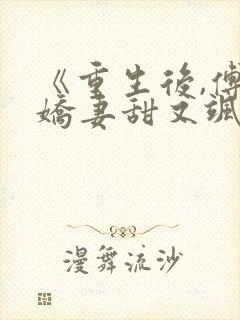 《重生後,傅
嬌妻甜又颯
漫舞流沙